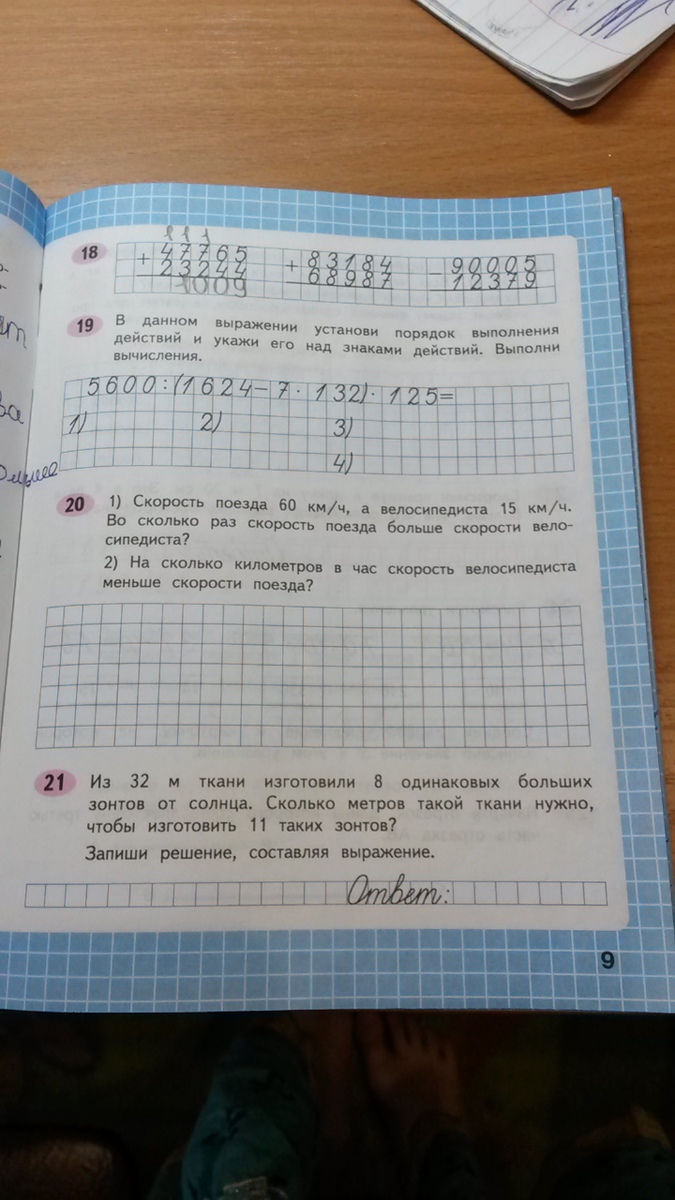 18
1 1 1
+ 47765 + 83184 - 90005
23244 68987 12379
1009
19 В данном выражении установи порядок выполнения
действий и укажи его над знаками действий. Выполни
вычисления.
5600:(1624-7·132)·125=
1) 2) 3)
4)
20 1) Скорость поезда 60 км/ч, а велосипедиста 15 км/ч.
Во сколько раз скорость поезда больше скорости вело-
сипедиста?
2) На сколько километров в час скорость велосипедиста
меньше скорости поезда?
21 Из 32 м ткани изготовили 8 одинаковых больших
зонтов от солнца. Сколько метров такой ткани нужно,
чтобы изготовить 11 таких зонтов?
Запиши решение, составляя выражение.
Ответ:
9